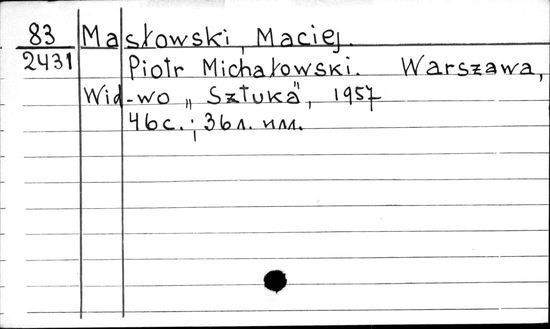 83 Masłowski, Maciej.
2431 Piotr Michałowski. Warszawa,
Wid-wo „Sztuka", 1957
46с.; 36л. илл.